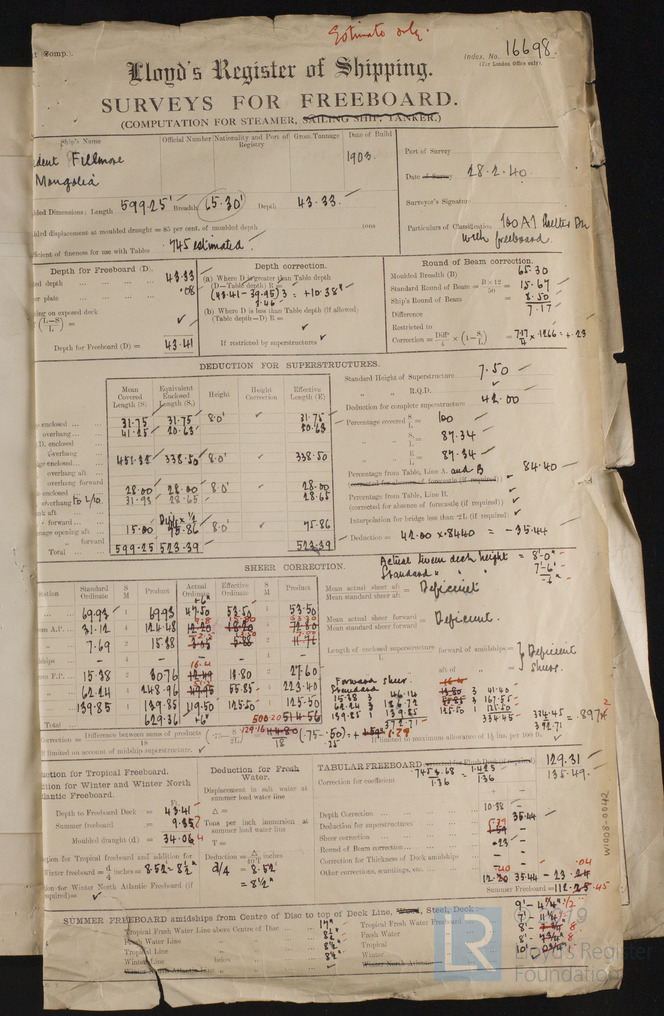 Estimate only.
Index. No. 16698.
(For London Office only).
Lloyd's Register of Shipping.
SURVEYS FOR FREEBOARD.
(COMPUTATION FOR STEAMER, SAILING SHIP, TANKER.)
Ship's Name
Official Number
Nationality and Port of Registry
Gross Tonnage
Date of Build
dent Fillmore
Mongolia
1903.
Port of Survey
Date of Survey 28.2.40.
Surveyor's Signature
Particulars of Classification 100 A1 Shelter Dk
with freeboard.
Dimensions: Length 599.25' Breadth 65.30' Depth 43.33.
displacement at moulded draught = 85 per cent. of moulded depth tons
of fineness for use with Tables .745 estimated.
Depth for Freeboard (D).
depth 43.33
plate .08
on exposed deck
(L-S)
Depth for Freeboard (D) = 43.41
Depth correction.
(a) Where D is greater than Table depth
(D—Table depth) R =
(43.41 - 39.95) 3 = +10.38"
3.46
(b) Where D is less than Table depth (if allowed)
(Table depth—D) R =
If restricted by superstructures
Round of Beam correction.
Moulded Breadth (B) 65.30
Standard Round of Beam = B×12/50 = 15.67
Ship's Round of Beam = 8.50
Difference 7.17
Restricted to
Correction = Diff/4 × (1-S/L) = 7.17/4 × .1266 = +.23
DEDUCTION FOR SUPERSTRUCTURES.
Mean Covered Length (S)
Equivalent Enclosed Length (S₁)
Height
Height Correction
Effective Length (E)
enclosed 31.75 31.75 8.0' 31.75
overhang 41.25 20.63 20.63
enclosed
overhang
enclosed 451.32 338.50 8.0' 338.50
overhang aft
overhang forward
enclosed 28.00 28.00 8.0' 28.00
overhang 31.93 28.65 28.65
aft
forward
opening aft 15.00 75.86 8.0' 75.86
forward
Total 599.25 523.39 523.39
Standard Height of Superstructure 7.50
R.Q.D.
Deduction for complete superstructure 42.00
Percentage covered S/L = 100
S₁/L = 87.34
E/L = 87.34
Percentage from Table, Line A. and B 84.40
(corrected for absence of forecastle (if required))
Percentage from Table, Line B.
(corrected for absence of forecastle (if required))
Interpolation for bridge less than .2L (if required)
Deduction = 42.00 × .8440 = -35.44
SHEER CORRECTION.
Actual tween deck height = 8'-0"
Standard = 7'-6"
Standard Ordinate
S M
Product
Actual Ordinate
Effective Ordinate
S M
Product
69.93 1 69.93 47.50 53.50 1 53.50
31.12 4 124.48
7.69 2 15.38
15.38 2 30.76 13.80 2 27.60
62.24 4 248.96 55.85 4 223.40
139.85 1 139.85 119.50 125.50 1 125.50
Total 629.36 514.56
Mean actual sheer aft = Deficient
Mean standard sheer aft
Mean actual sheer forward = Deficient.
Mean standard sheer forward
Length of enclosed superstructure forward of amidships = Deficient
aft of sheer.
Forward sheer.
Standard
15.38 3 46.14
62.24 3 186.72
139.85 1 139.85
372.71
13.80 3 41.40
55.85 3 167.55
125.50 1 125.50
334.45
334.45/372.71 = .897
Correction = Difference between sums of products/18 (.75 - S/2L) = 114.80/18 (.75-.50) = + 1.29
.25
If limited on account of midship superstructure.
If limited to maximum allowance of 1½ ins. per 100 ft.
Deduction for Tropical Freeboard.
Addition for Winter and Winter North
Atlantic Freeboard.
Depth to Freeboard Deck = 43.41
Summer freeboard = 9.35
Moulded draught (d) = 34.06
Deduction for Tropical freeboard and addition for
Winter freeboard = d/4 inches = 8.52 = 8½"
Addition for Winter North Atlantic Freeboard (if required) =
Deduction for Fresh Water.
Displacement in salt water at summer load water line
Δ =
Tons per inch immersion at summer load water line
T =
Deduction = Δ/40T inches
d/4 = 8.52
= 8½"
TABULAR FREEBOARD 129.31
Correction for coefficient .745 + .68/1.36 = 1.425/1.36 135.49
+ -
Depth Correction 10.38
Deduction for superstructures 35.44
Sheer correction 1.29
Round of Beam correction .23
Correction for Thickness of Deck amidships
Other corrections, scantlings, etc.
35.44 - 23.24
Summer Freeboard = 112.25
SUMMER FREEBOARD amidships from Centre of Disc to top of Deck Line, Wood, Steel, Deck:
Tropical Fresh Water Line above Centre of Disc 17"
Fresh Water Line 8½"
Tropical Line 8½"
Winter Line below 8½"
Winter North Atlantic Line
Tropical Fresh Water Freeboard
Fresh Water
Tropical
Winter
Winter North Atlantic
W1008-0042
© 2019
LR
Lloyd's Register
Foundation